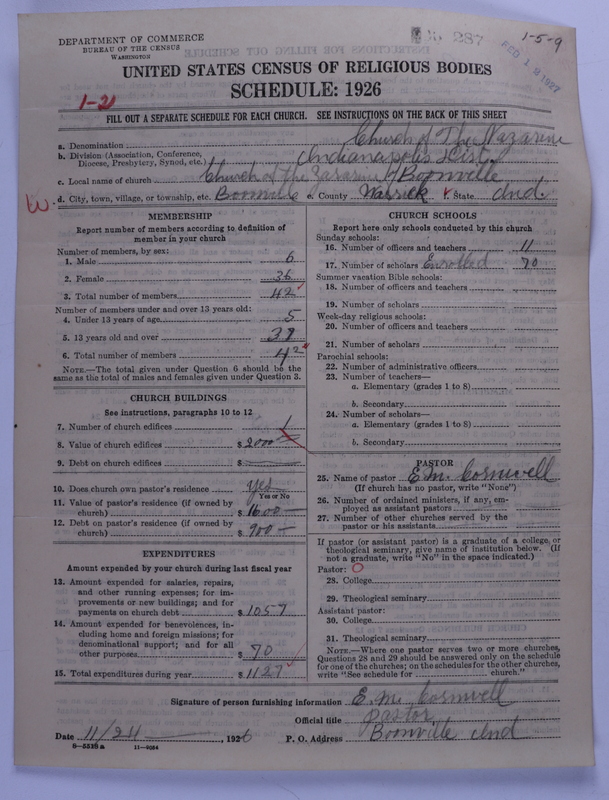 DEPARTMENT OF COMMERCE
BUREAU OF THE CENSUS
WASHINGTON
287
1-5-9
FEB 18 1927
UNITED STATES CENSUS OF RELIGIOUS BODIES
SCHEDULE: 1926
1-21
FILL OUT A SEPARATE SCHEDULE FOR EACH CHURCH. SEE INSTRUCTIONS ON THE BACK OF THIS SHEET
a. Denomination Church of The Nazarene
b. Division (Association, Conference, Diocese, Presbytery, Synod, etc.) Indianapolis Dist.
c. Local name of church Church of the Nazarene of Boonville
W. d. City, town, village, or township, etc. Boonville e. County Warrick f. State Ind.
MEMBERSHIP
Report number of members according to definition of
member in your church
Number of members, by sex:
1. Male 6
2. Female 36
3. Total number of members 42
Number of members under and over 13 years old:
4. Under 13 years of age 5
5. 13 years old and over 37
6. Total number of members 42
NOTE.—The total given under Question 6 should be the
same as the total of males and females given under Question 3.
CHURCH BUILDINGS
See instructions, paragraphs 10 to 12
7. Number of church edifices 1
8. Value of church edifices $ 2000
9. Debt on church edifices $
10. Does church own pastor's residence yes
Yes or No
11. Value of pastor's residence (if owned by
church) $ 1600
12. Debt on pastor's residence (if owned by
church) $ 900
EXPENDITURES
Amount expended by your church during last fiscal year
13. Amount expended for salaries, repairs,
and other running expenses; for im-
provements or new buildings; and for
payments on church debt $ 1057
14. Amount expended for benevolences, in-
cluding home and foreign missions; for
denominational support; and for all
other purposes $ 70
15. Total expenditures during year $ 1127
CHURCH SCHOOLS
Report here only schools conducted by this church
Sunday schools:
16. Number of officers and teachers 11
17. Number of scholars Enrolled 70
Summer vacation Bible schools:
18. Number of officers and teachers
19. Number of scholars
Week-day religious schools:
20. Number of officers and teachers
21. Number of scholars
Parochial schools:
22. Number of administrative officers
23. Number of teachers—
a. Elementary (grades 1 to 8)
b. Secondary
24. Number of scholars—
a. Elementary (grades 1 to 8)
b. Secondary
PASTOR
25. Name of pastor E.M. Cornwell
(If church has no pastor, write "None")
26. Number of ordained ministers, if any, em-
ployed as assistant pastors
27. Number of other churches served by the
pastor or his assistants
If pastor (or assistant pastor) is a graduate of a college, or
theological seminary, give name of institution below. (If
not a graduate, write "No" in the space indicated.)
Pastor: O
28. College
29. Theological seminary
Assistant pastor:
30. College
31. Theological seminary
NOTE.—Where one pastor serves two or more churches,
Questions 28 and 29 should be answered only on the schedule
for one of the churches; on the schedules for the other churches,
write "See schedule for church."
Signature of person furnishing information E. M. Cornwell
Official title Pastor
Date 11/24, 1926 P. O. Address Boonville Ind
8—5518 a 11—9064